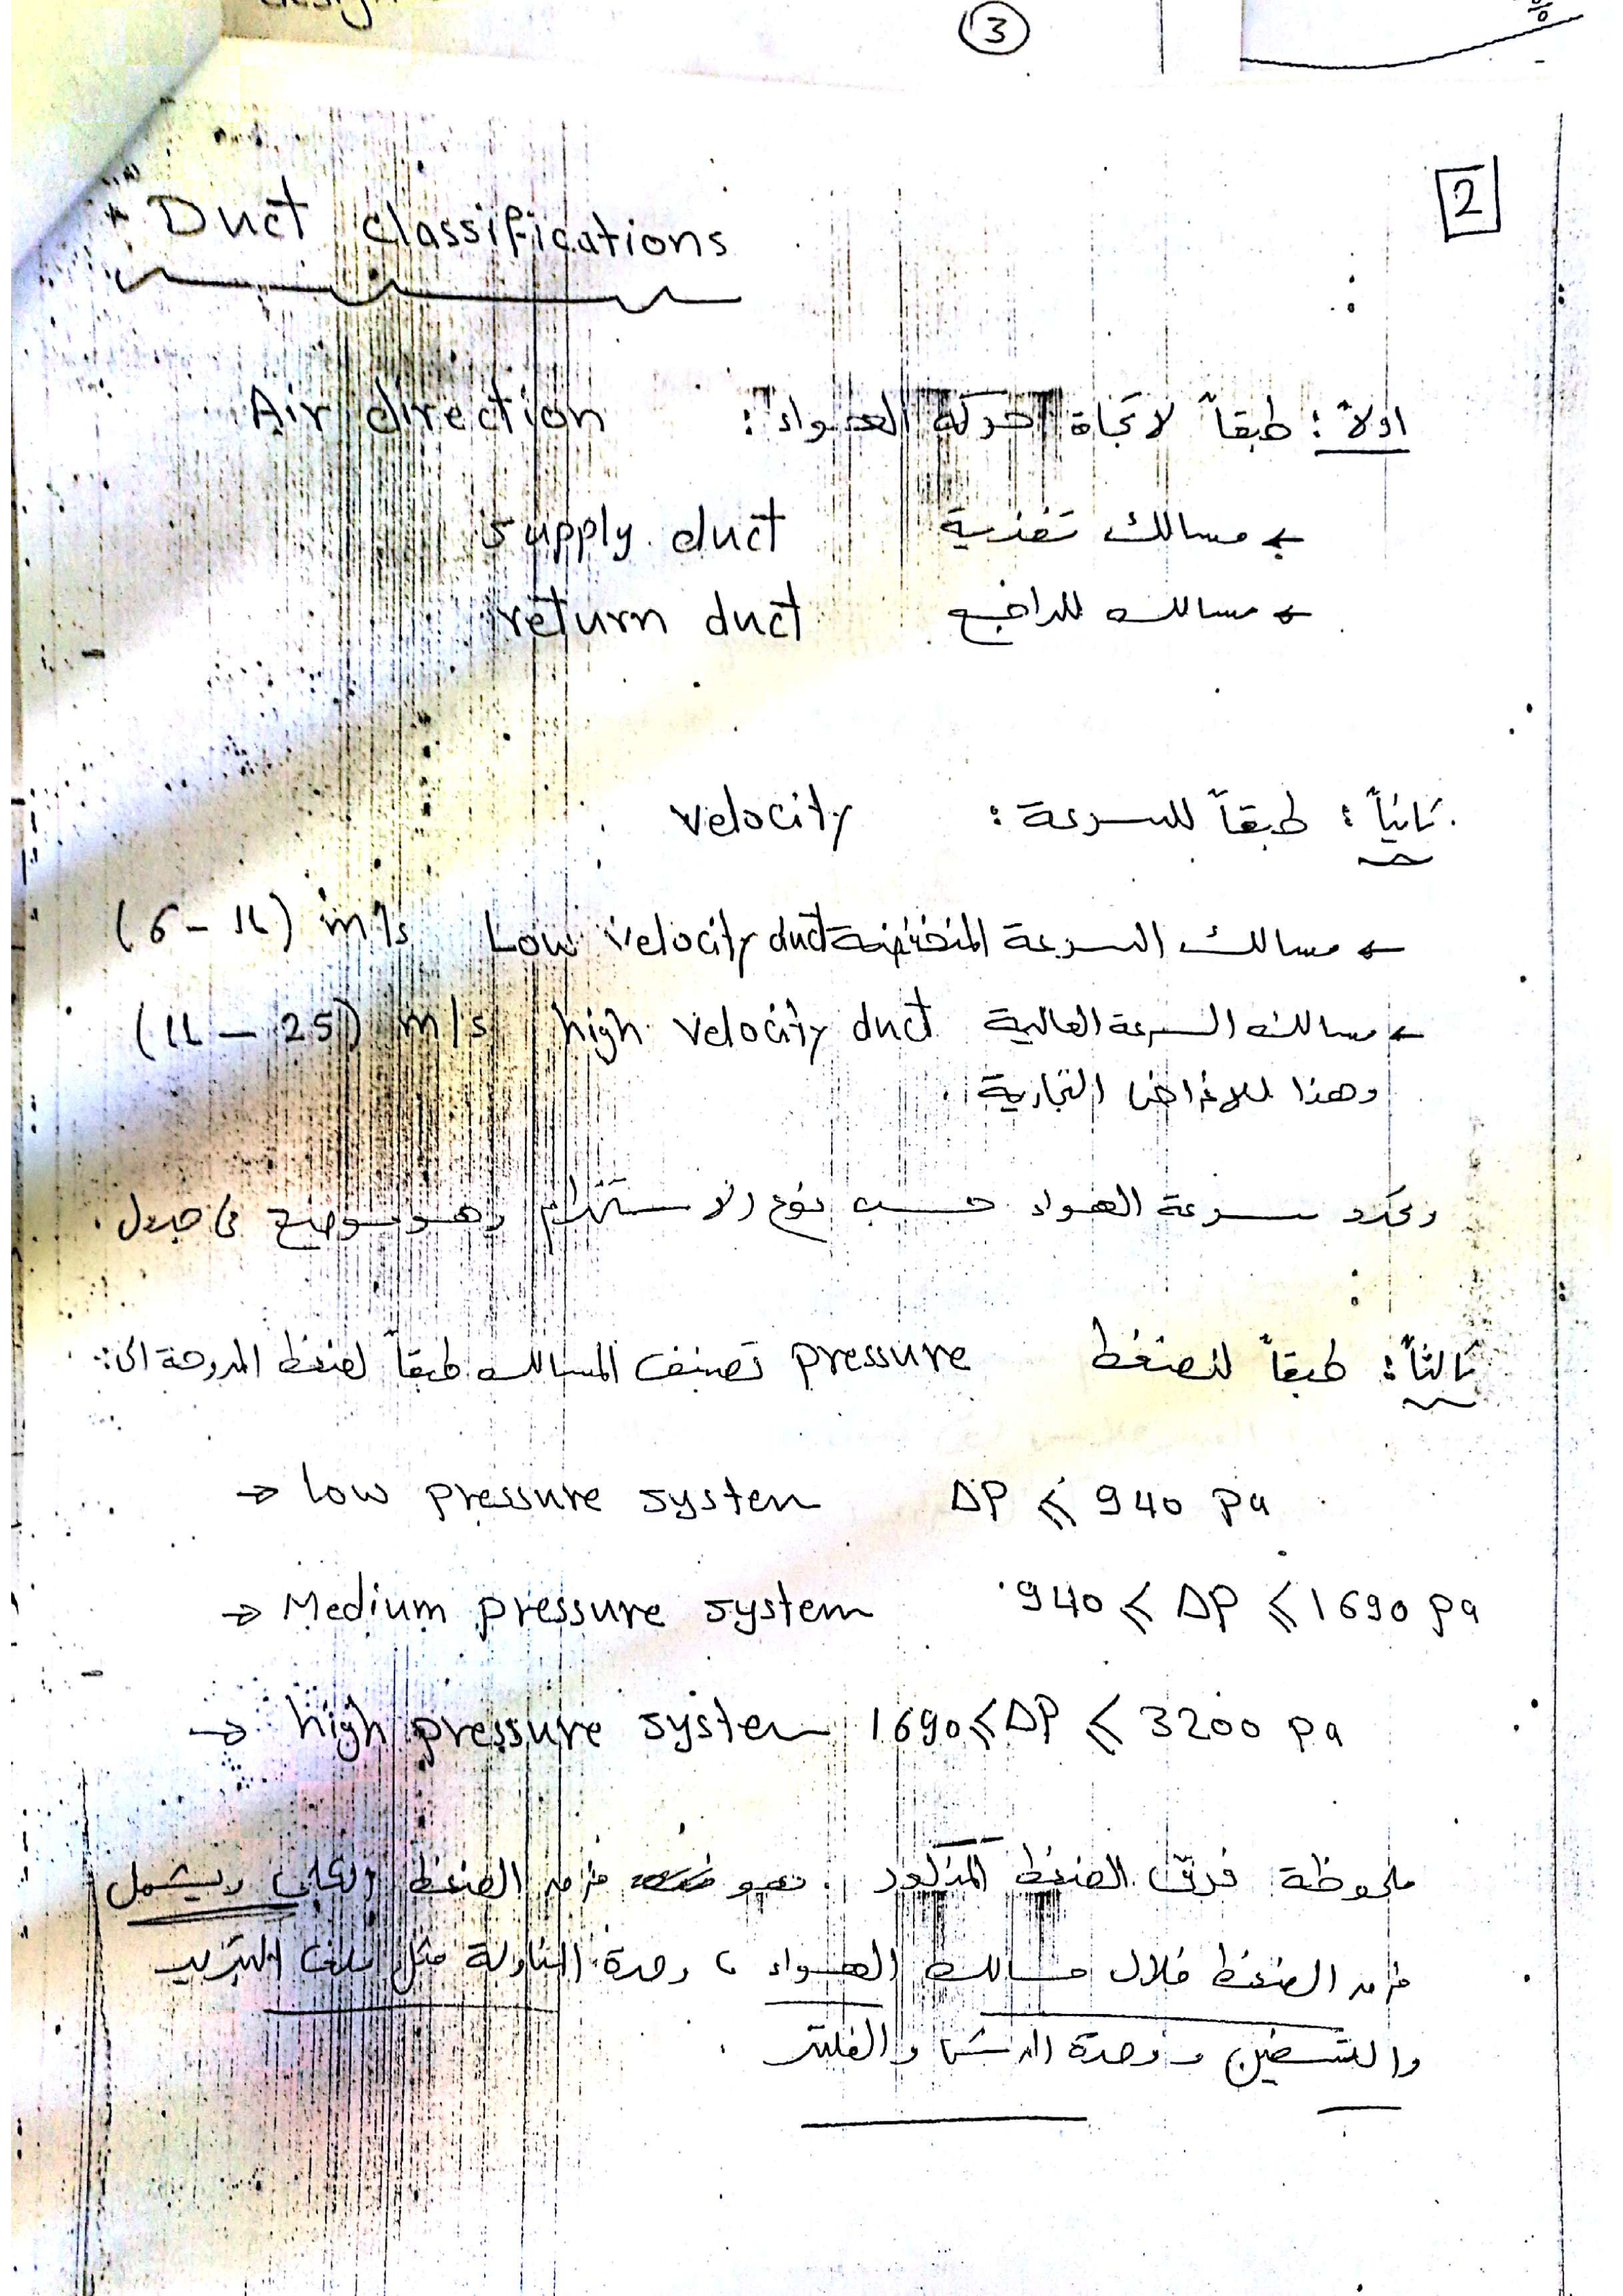 design
3
2
* Duct classifications
اولاً : طبقاً لاتجاة حركة الهواء : Air direction
← مسالك تغذية supply duct
← مسالك للراجع return duct
ثانياً : طبقاً للسرعة : velocity
← مسالك السرعة المنخفضة Low velocity duct (6 - 11) m/s
← مسالك السرعة العالية high velocity duct (11 - 25) m/s
وهذا للاغراض التجارية .
وتحدد سرعة الهواء حسب نوع الاستخدام وهو موضح فى جدول .
ثالثاً : طبقاً للضغط pressure تصنف المسالك طبقاً لضغط المروحة الى :
→ low pressure system ΔP ≤ 940 pa
→ Medium pressure system 940 < ΔP ≤ 1690 pa
→ high pressure system 1690 ≤ ΔP ≤ 3200 pa
ملحوظة فرق الضغط المذكور هو فرق الضغط الكلى ويشمل
فرق الضغط خلال مسالك الهواء ، وحدة المناولة مثل ملف التبريد
والتسخين ووحدة الرش والفلتر .